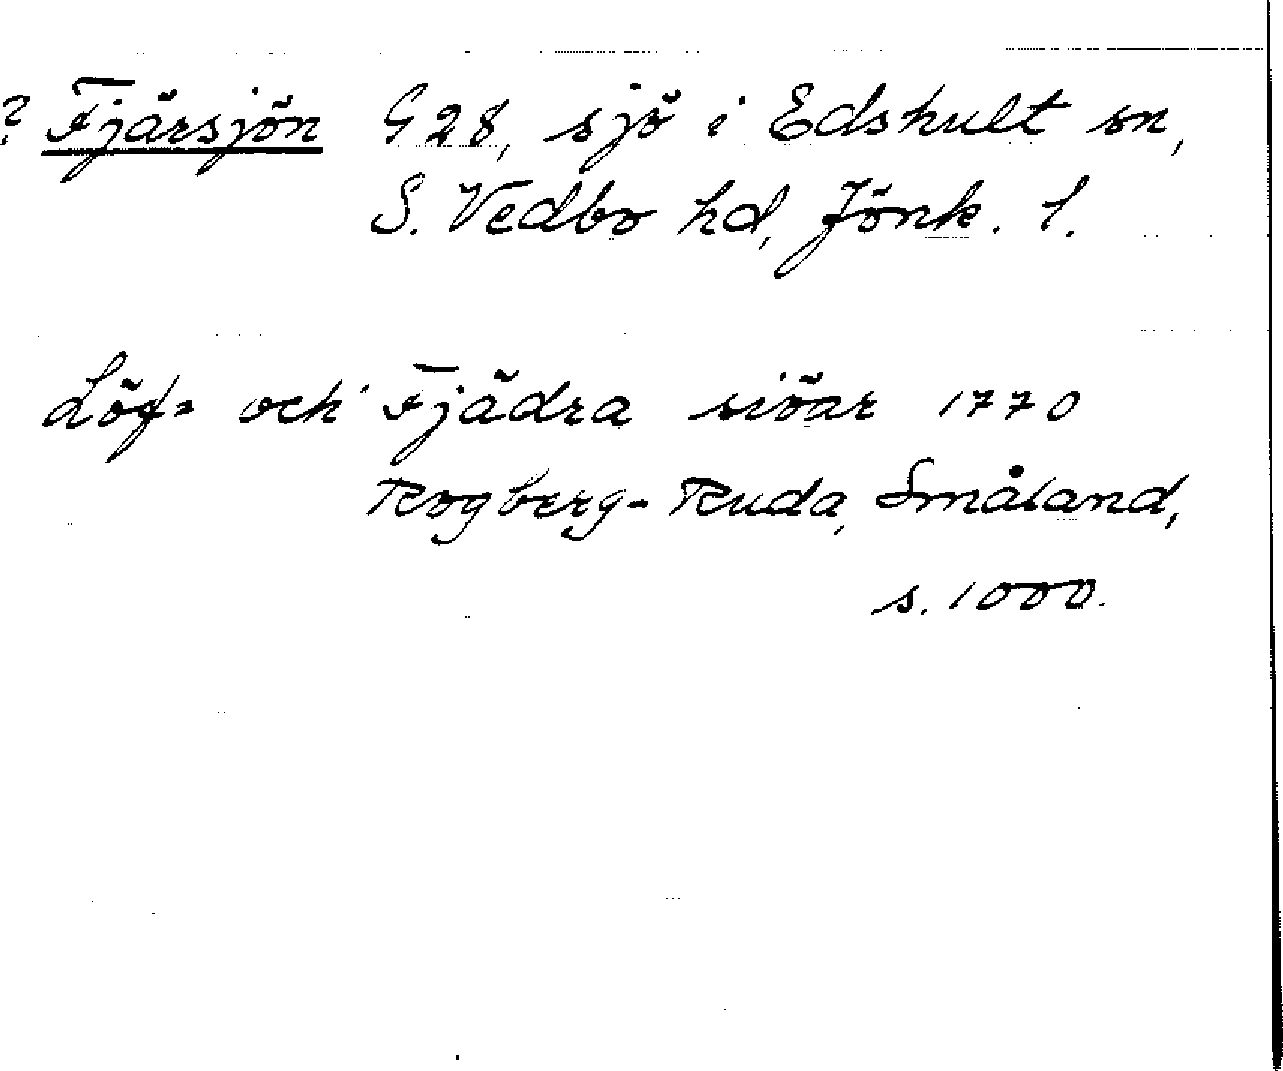 ? Fjärsjön G28, sjö i Edshult sn,
S. Vedbo hd, Jönk. l.
Löf- och Fjädra siöar 1770
Rogberg-Ruda, Småland,
s. 1000.